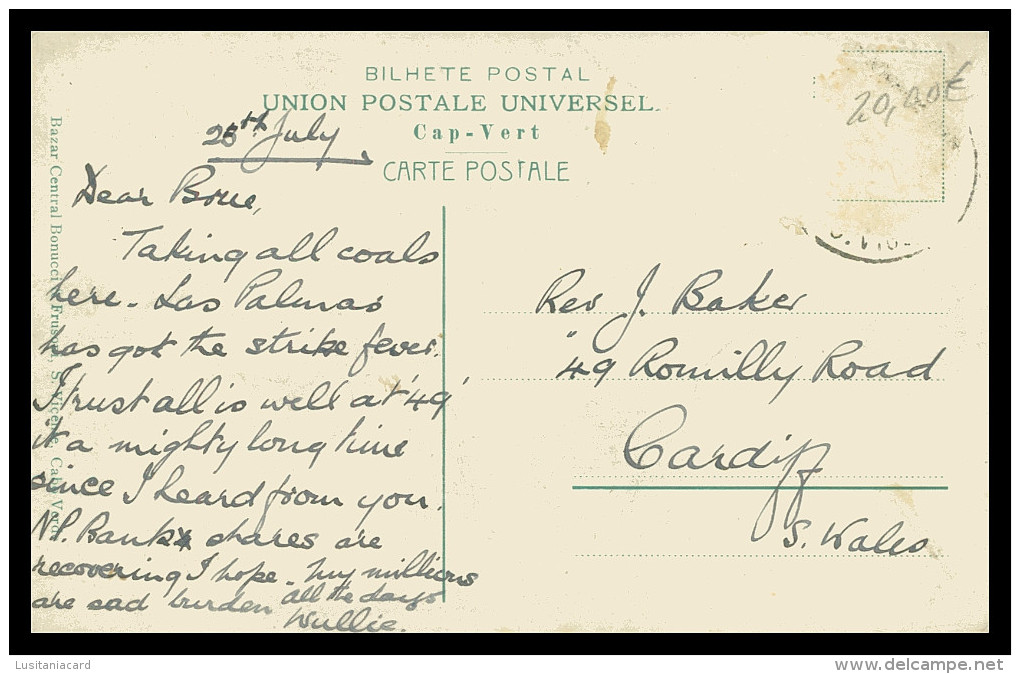 BILHETE POSTAL
UNION POSTALE UNIVERSEL.
Cap-Vert
CARTE POSTALE
20,00€
25th July
Dear
Taking all coals
here - Las Palmas
has got the strike fever.
I trust all is well at '49',
it a mighty long time
since I heard from you.
N.P. Bank shares are
recovering I hope - my millions
are sad burden all the days
Wullie.
Rev J. Baker
"49 Romilly Road
Cardiff
S. Wales
Bazar Central Bonucci Frusoni, S. Vicente, Cabo Verde
Lusitaniacard
www.delcampe.net